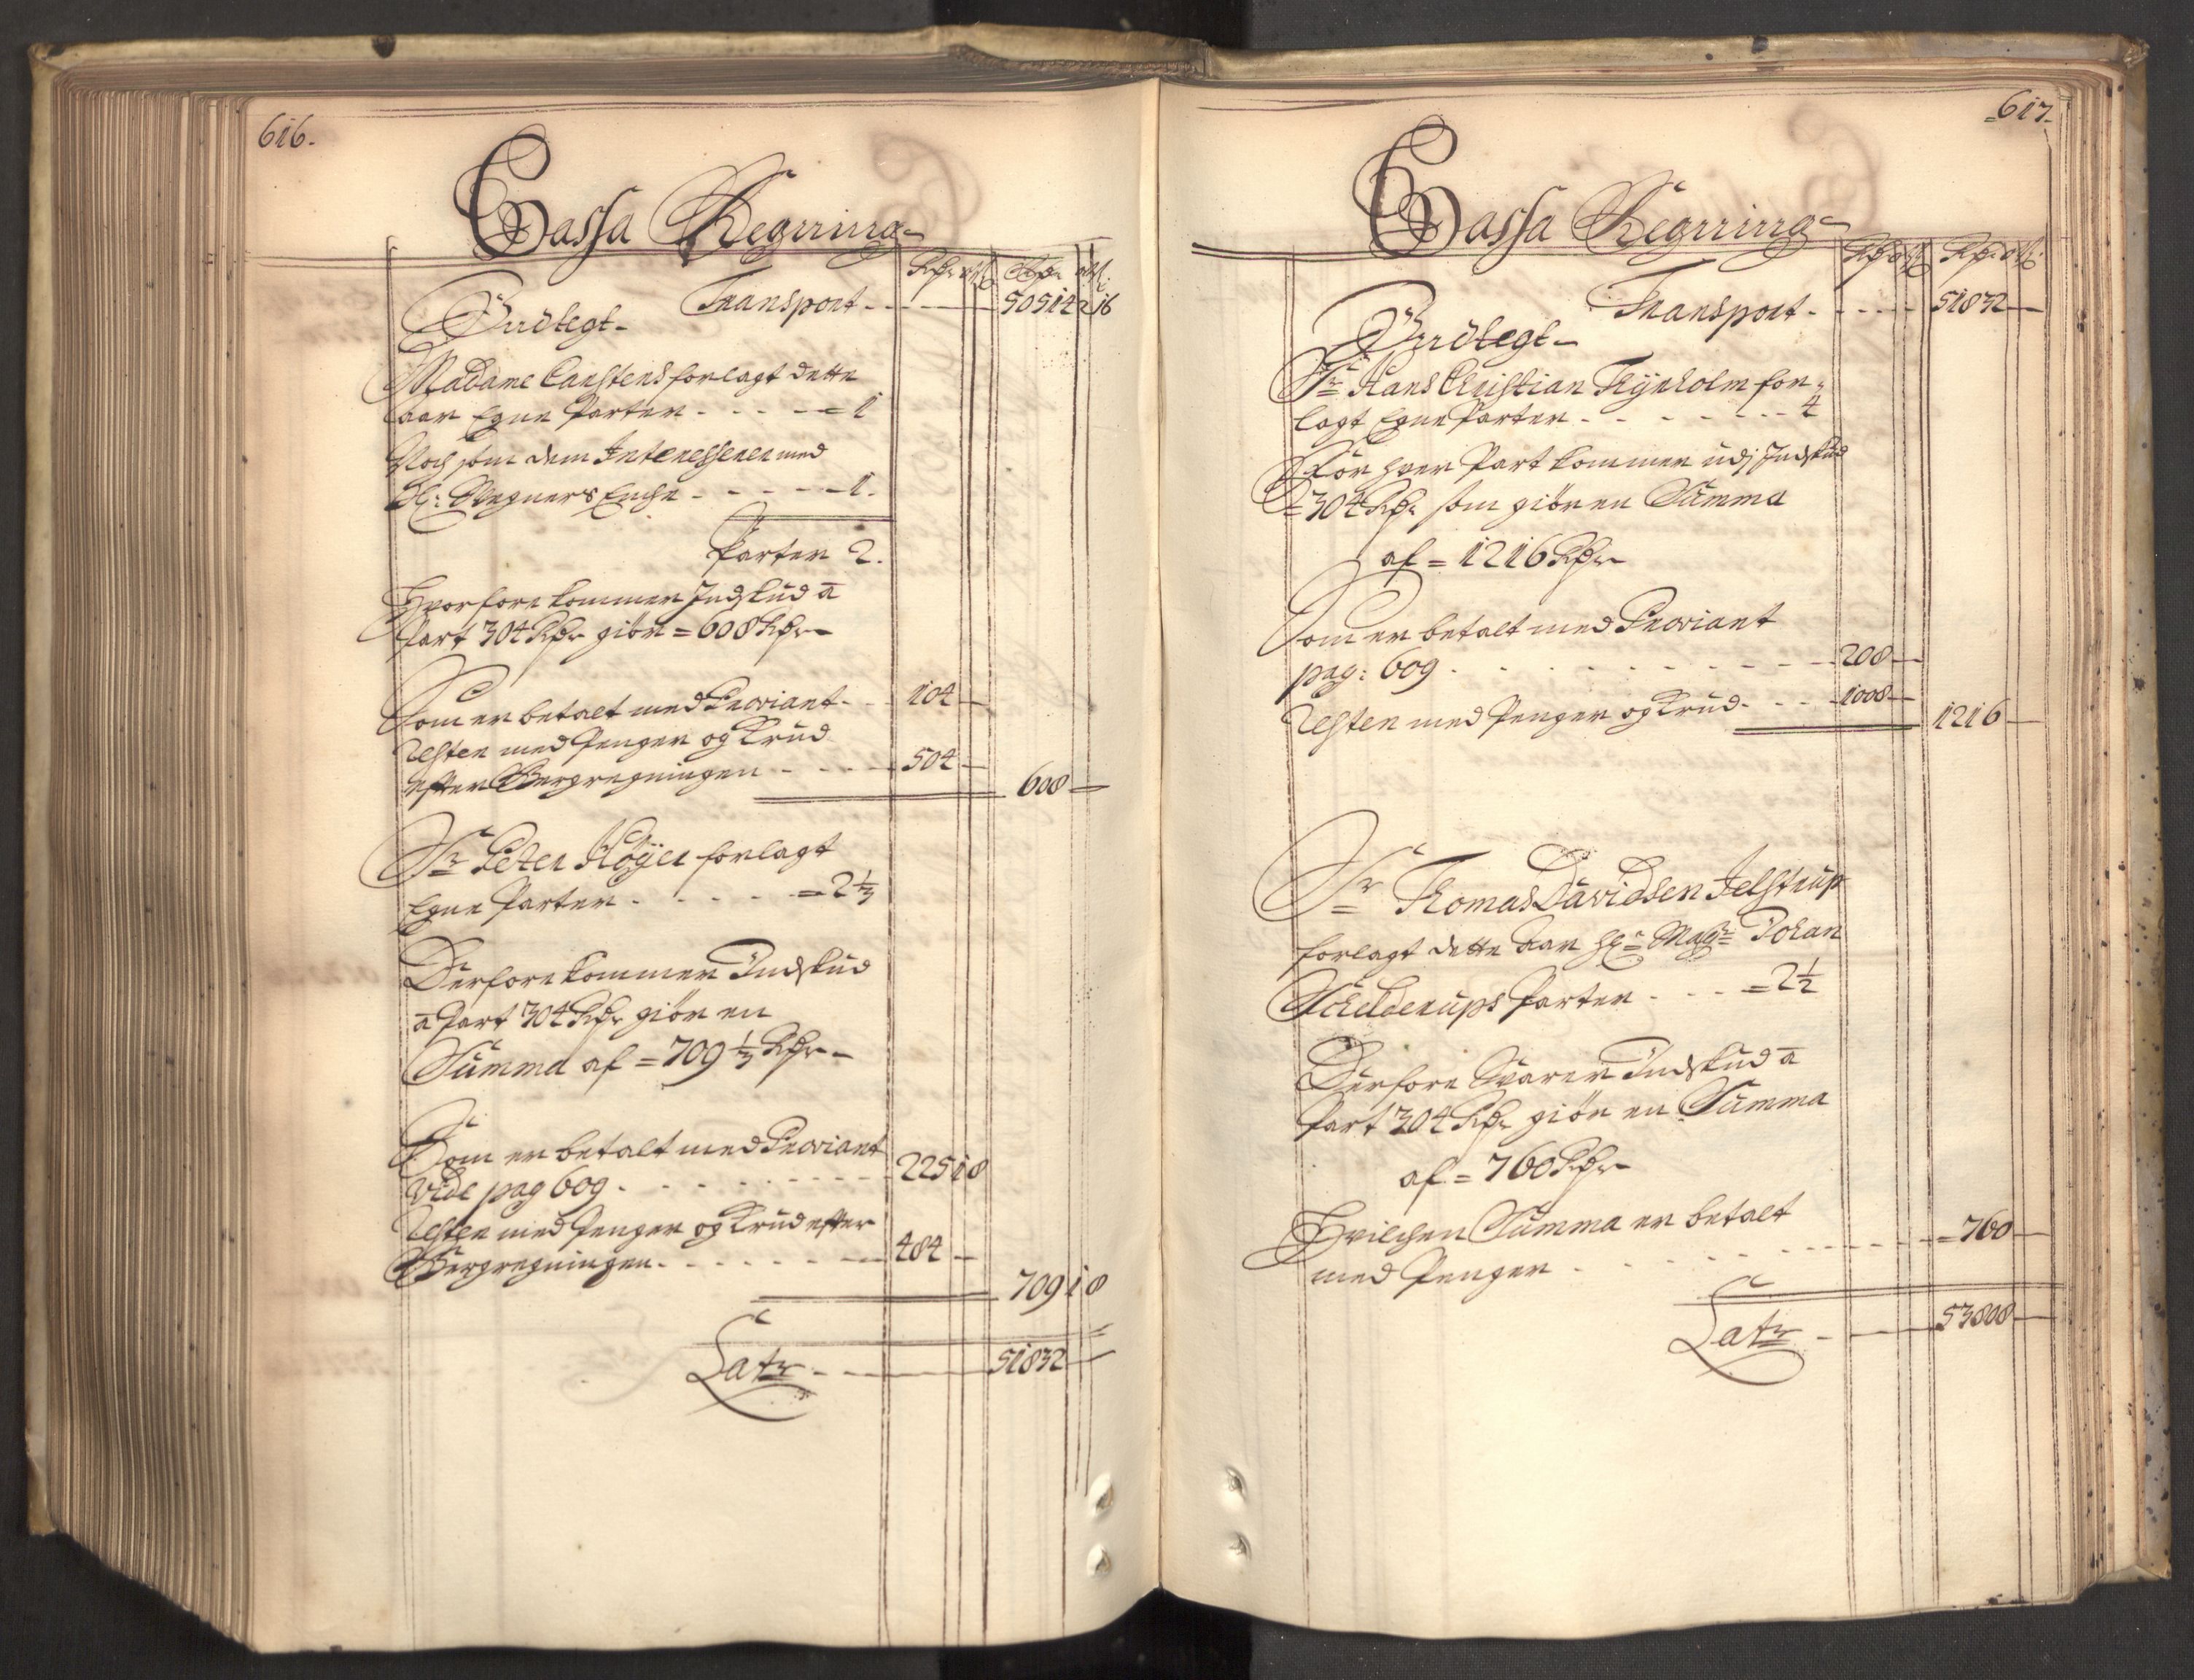 616.
Cassa Regning
Rdr. Mk. ß Rdr. Mk. ß
Transport - - - 50514 2 16
Indlegt
Madame Carstens forlagt dette
aar Egne Parter - - - - = 1
Noch som dem Interessener med
Sl: Wegners Enche - - - - - 1.
Parter 2.
Hvorfore kommer Indskud a
Part 304 Rdr giör = 608 Rdr
Som er betalt med Proviant - - 104 —
Resten med Penger og Krud
efter Bergregningen - - - - 504 —
608 —
Sr Peter Höyer forlagt
Egne Parter - - - - - = 2 1/3
Derfore kommer Indskud
a Part 304 Rdr giör en
Summa af = 709 1/3 Rdr
Som er betalt med Proviant
vide pag 609 - - - - - - - 225 1 8
Resten med Penger og Krud efter
Bergregningen - - - - - - 484 —
709 1 8
Latr - - - 51832 —
617.
Cassa Regning
Rdr. Mk. ß Rdr. Mk. ß
Transport - - - - 51832 —
Indlegt
Sr Hans Christian Thÿrholm for-
lagt Egne Parter - - - - - - 4
För hver Part kommer udj Indskud
= 304 Rdr som giör en Summa
af = 1216 Rdr
Som er betalt med Proviant
pag: 609 - - - - - - - - - 208 —
Resten med Penger og Krud - - - 1008 —
1216 —
Sr Thomas Davidsen Jelstrup
forlagt dette aar Hr Magr Johan
Schelderups Parter - - - = 2 1/2
Derfore Svarer Indskud a
Part 304 Rdr giör en Summa
af = 760 Rdr
Hvilchen Summa er betalt
med Penger - - - - - - - - - = 760 —
Latr - - - 53808 —